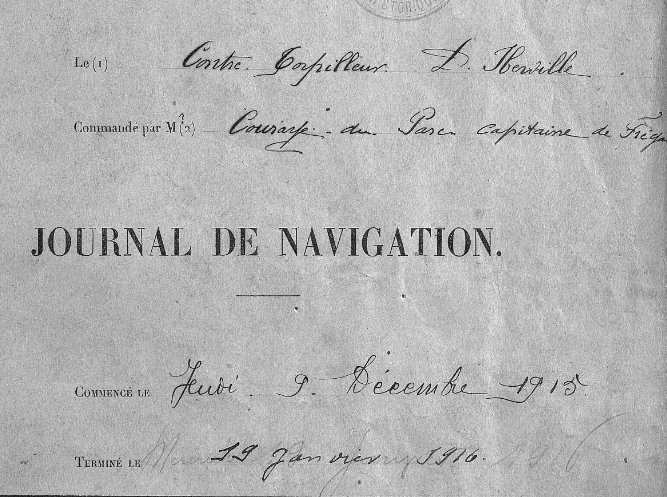 Le (1) Contre-Torpilleur D'Iberville
Commandé par M. (2) Couraye du Parc capitaine de Fréga
JOURNAL DE NAVIGATION.
COMMENCÉ LE Jeudi 9 Décembre 1915
TERMINÉ LE 19 Janvier 1916.